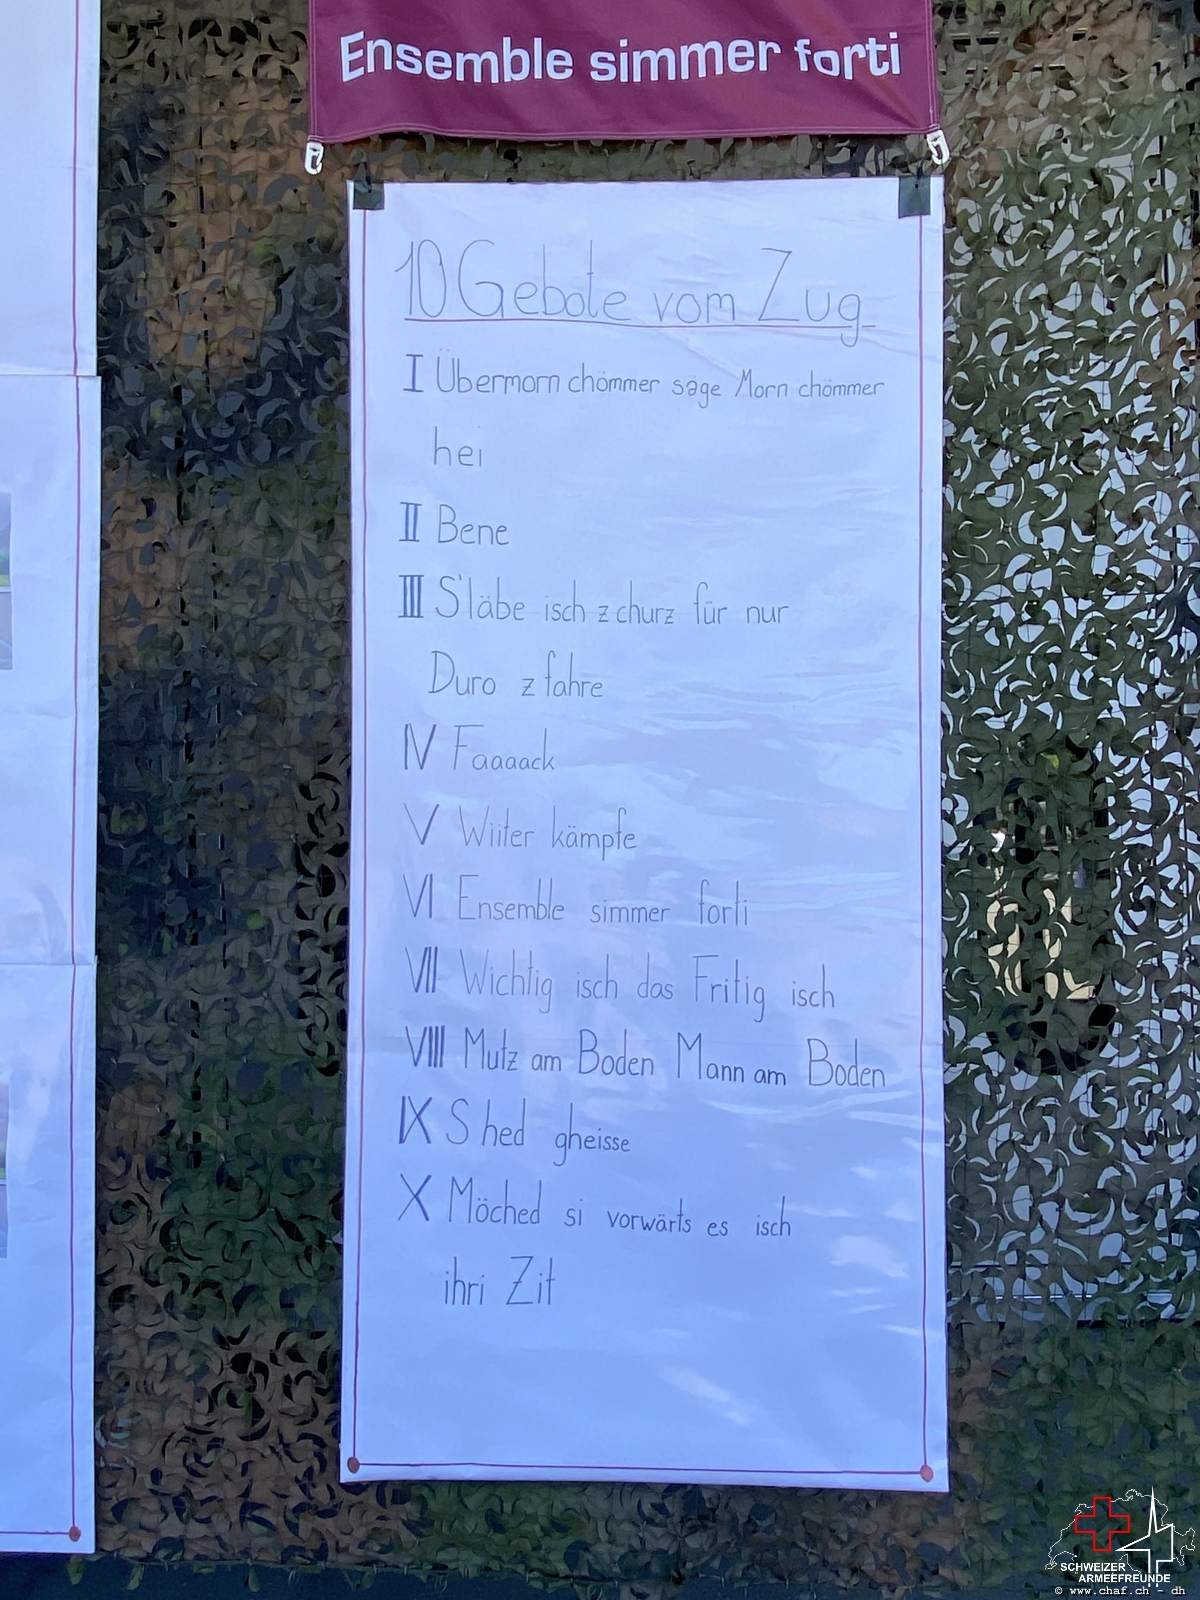 Ensemble simmer forti
10 Gebote vom Zug
I Übermorn chömmer säge Morn chömmer
hei
II Bene
III S'läbe isch z churz für nur
Duro z fahre
IV Faaaack
V Wiiter kämpfe
VI Ensemble simmer forti
VII Wichtig isch das Fritig isch
VIII Mutz am Boden Mann am Boden
IX S hed gheisse
X Möched si vorwärts es isch
ihri Zit
SCHWEIZER
ARMEEFREUNDE
© www.chaf.ch - dh